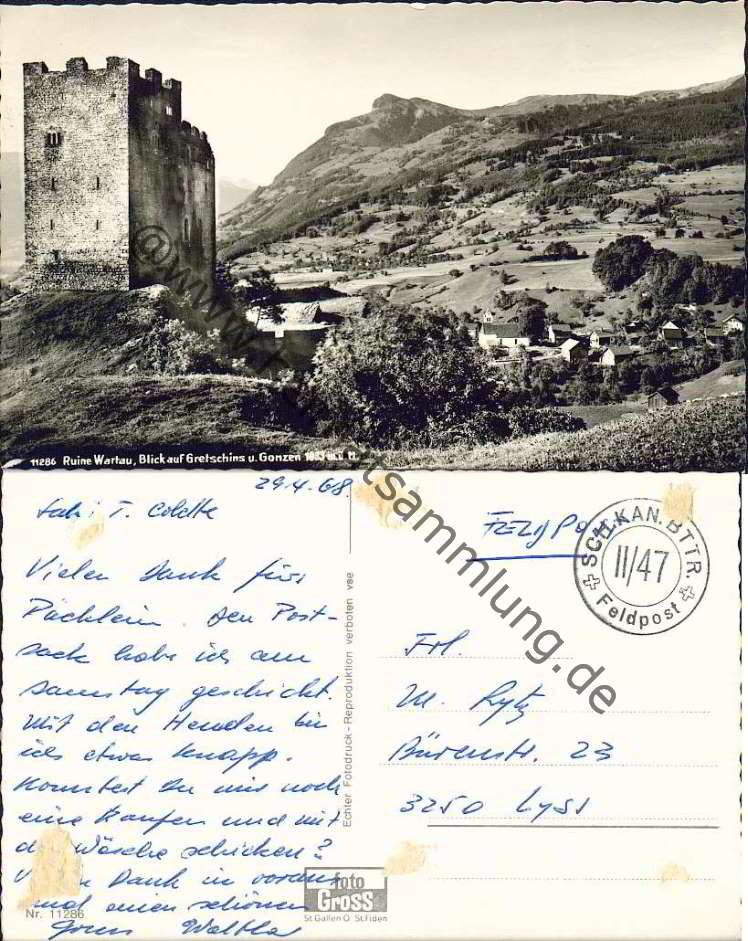 11286 Ruine Wartau, Blick auf Gretschins u. Gonzen 1833 m ü M.
29.4.68.
T. Colette
Vielen Dank für's
Päcklein. Den Post-
sack habe ich am
Samstag geschickt.
Mit den Hemden bin
ich etwas knapp.
Könntest Du mir noch
eine kaufen und mit
der Wäsche schicken?
Dank in voraus
und einen schönen
Gruss
Nr. 11286
Echter Fotodruck - Reproduktion verboten vse
foto
GROSS
St Gallen O St Fiden
FELDPOST
SCH.KAN.BTTR.
II/47
Feldpost
Frl.
M. Lytz
Bürenstr. 23
3250 Lyss
ansichtskartensammlung.de